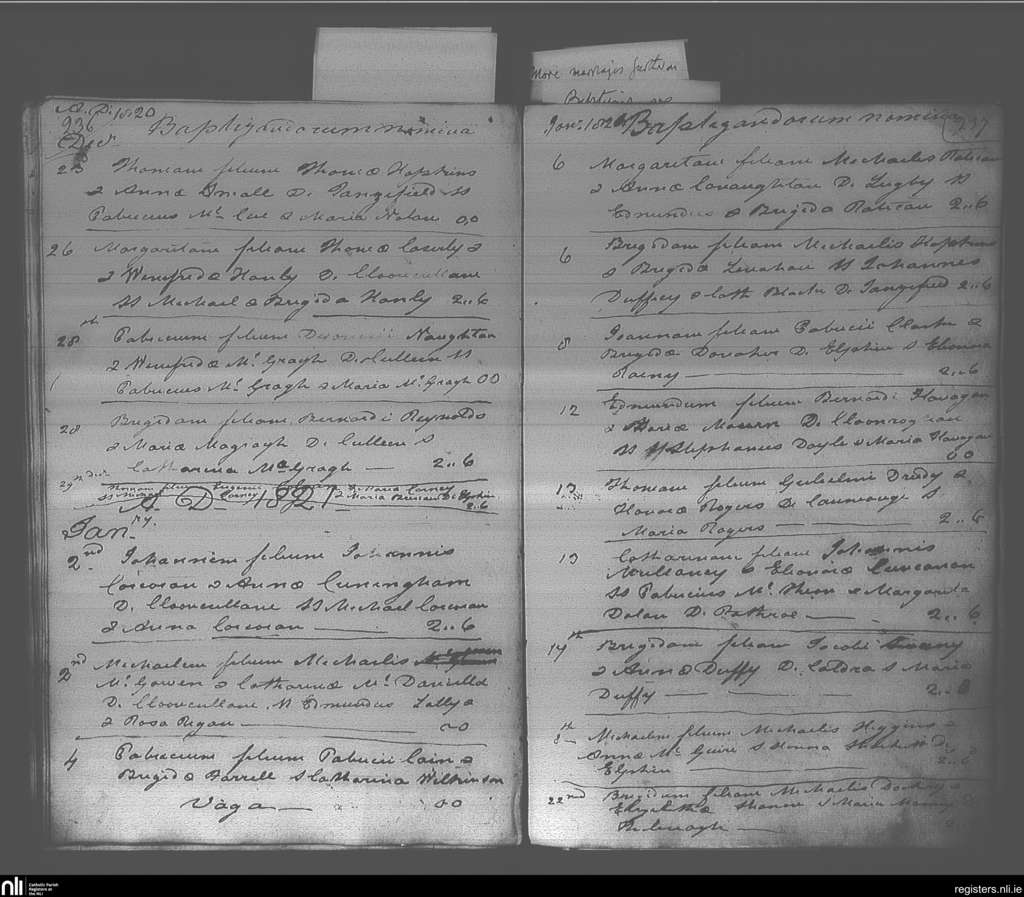 More marriages further
A. D. 1820
936
Baptizandorum nomina
Decr
23 Thomam filium Thomæ Hopkins
& Annæ Small D. Tangifield SS
Patricius Mc & Maria Nolan 0,0
26 Margaritam filiam Thomæ Caserly &
& Winefridæ Hanly D. Clooncullane
SS Michael & Brigida Hanly 2..6
28th Patricium filium Naughton
& Winefridæ Mc Gragh D. Culleen SS
Patricius Mc Gragh & Maria Mc Gragh 00
28 Brigidam filiam Bernardi Reynolds
& Mariæ Magragh D. Culleen S
Catharina Ma Gragh — 2..6
29th Decr Thomam filium Eugenii & Maria Carney
2..6
A D 1821
Janry.
2nd Johannem filium Johannis
Corcoran & Annæ Cuningham
D. Clooncullane SS Michael Corcoran
& Anna Corcoran — 2..6
2nd Michaelem filium Michaelis
Mc Gowen & Catharinæ Mc Daniell
D. Clooncullane SS Edmundus Lally &
& Rosa Regan —
4 Patricium filium Patricii Cain &
Brigidæ Farrell S Catharina Wilkinson
Vaga — 00
Jany. 1821 Baptizandorum nomina 937
6 Margaritam filiam Michaelis Rattican
& Annæ Cavaughton D. Lugby SS
Edmundus & Brigida Rattican 2..6
6 Brigidam filiam Michaelis Hopkins
& Brigidæ Lenahan SS Johannes
Duffiey & Cath Blacke D. Tangifield 2..6
8 Joannam filiam Patricii Clarke &
Brigidæ Donaher D. Elphin S Elionora
— 2..6
12 Edmundum filium Bernardi Flanagan
& Mariæ D. Cloonroghan
SS Stephanus Doyle & Maria Flanagan
00
13 Thomam filium Gulielmi Drudy &
Honoræ Rogers D. S
Maria Rogers — 2..6
13 Catharinam filiam Johannis
Mullaney & Elionoræ
SS Patricius Mc & Margarita
Dolan D. Rathroe — 2..6
14th Brigidam filiam Jacobi
& Annæ Duffy D. Caldra S Maria
Duffy — 2..6
Michaelem filium Michaelis Higgins &
Annæ Mc Guire S Honora D.
Elphin — 2..6
22nd Brigidam filiam Michaelis Dockry &
Elizabethæ S Maria
nli
Catholic Parish
Registers at
the NLI
registers.nli.ie